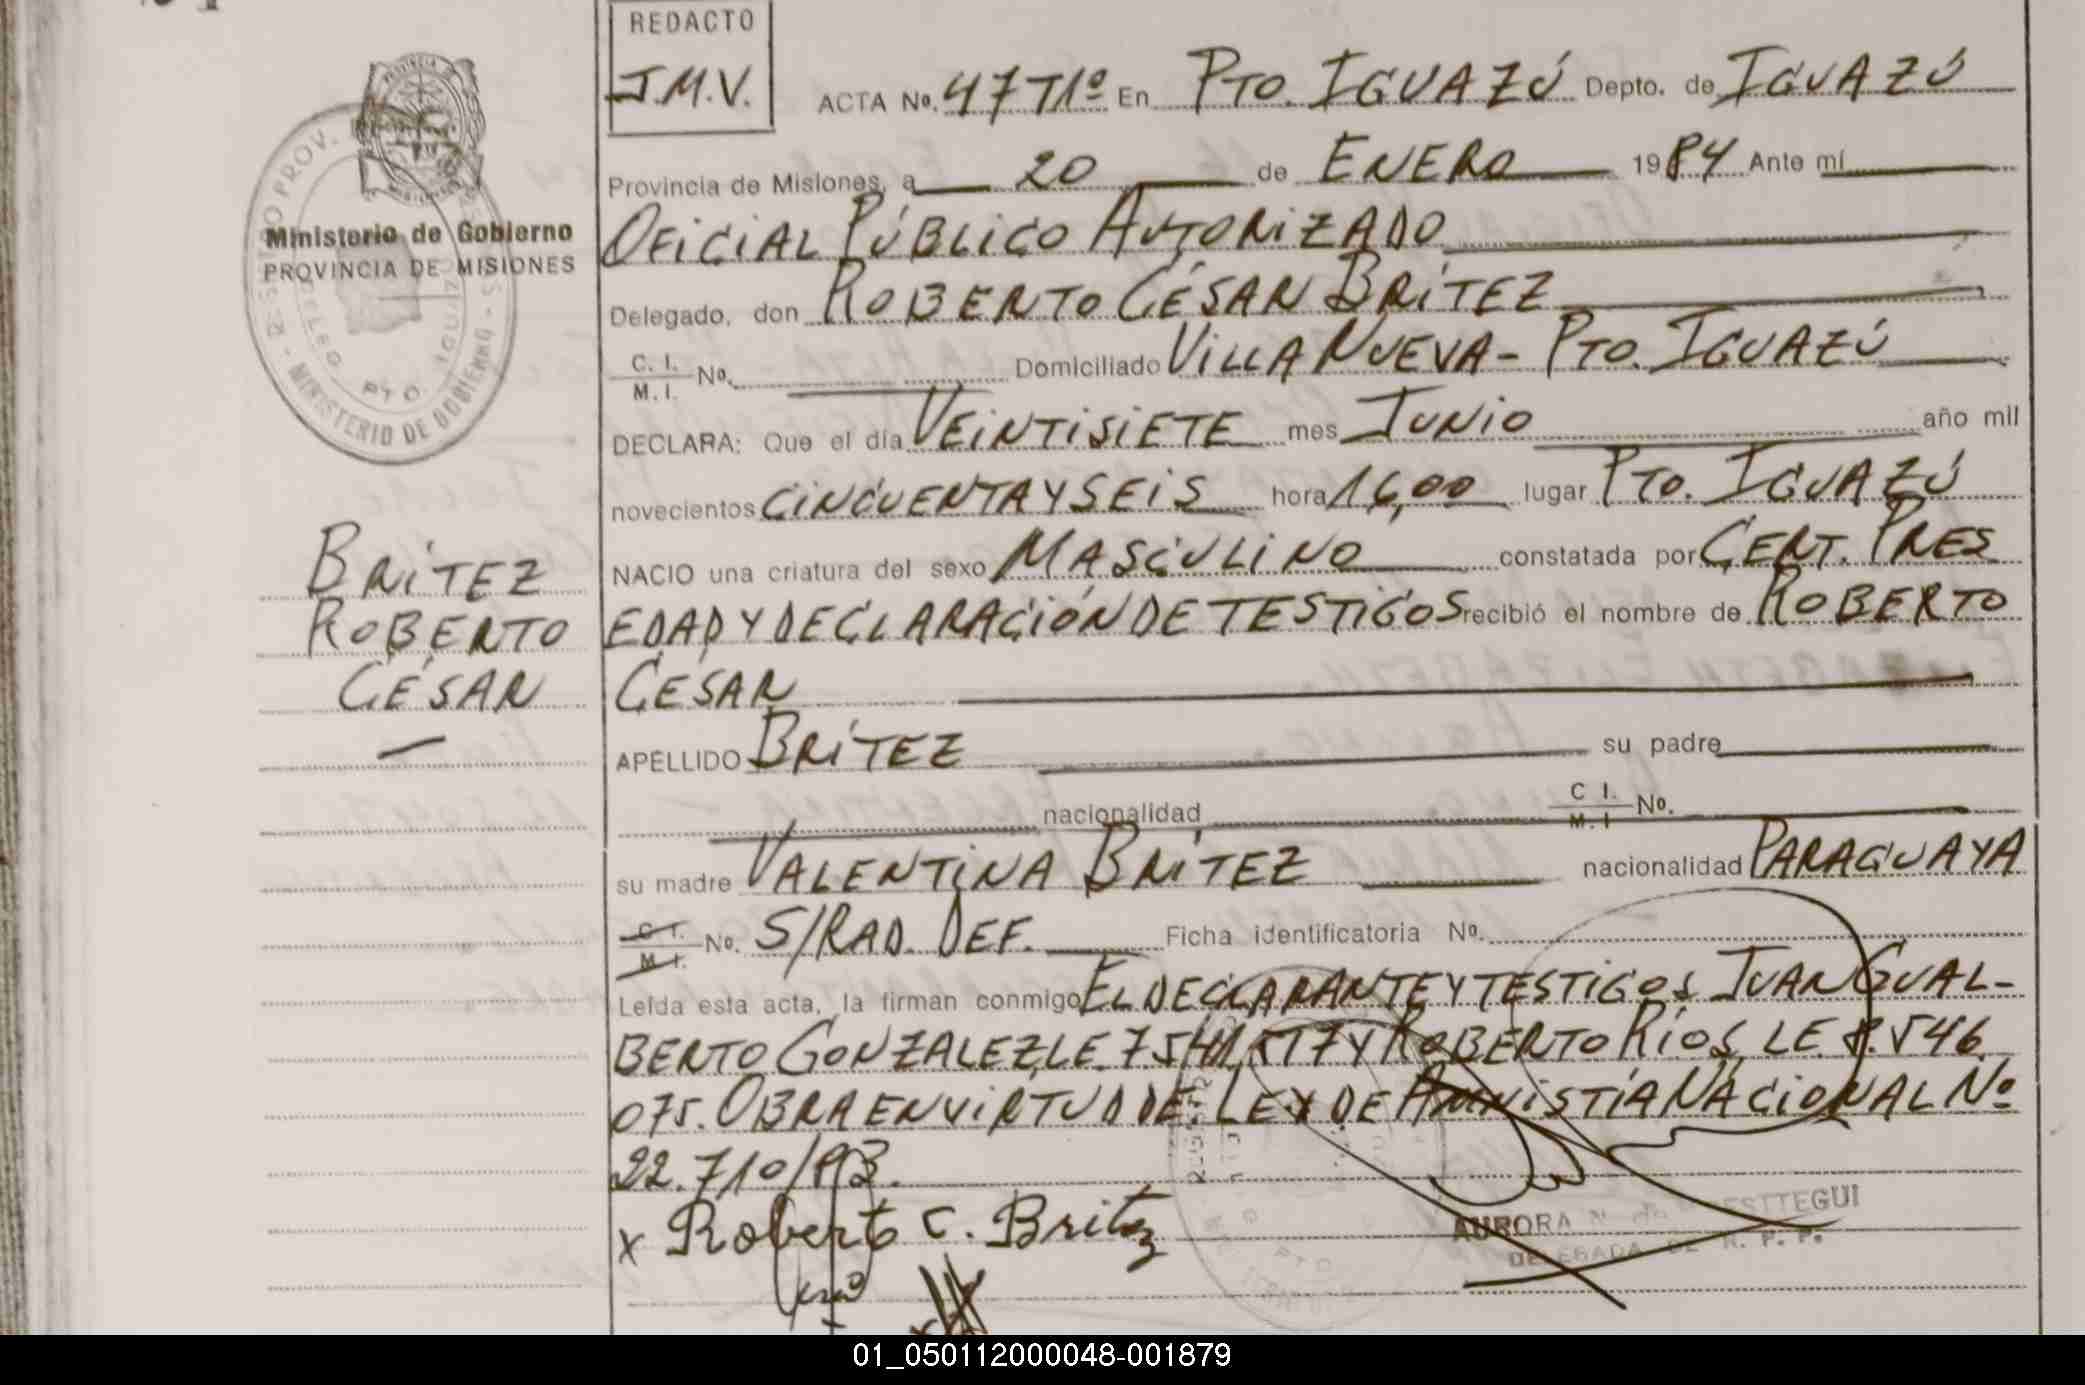 REDACTO
J.M.V.
ACTA No. 47 T1º En PTO. IGUAZÚ Depto. de IGUAZÚ
Provincia de Misiones, a 20 de ENERO 1984 Ante mí
OFICIAL PÚBLICO AUTORIZADO
Delegado, don ROBERTO CÉSAR BRÍTEZ
C. I. M. I. No. Domiciliado VILLA NUEVA - PTO. IGUAZÚ
DECLARA: Que el día VEINTISIETE mes JUNIO año mil
novecientos CINCUENTA Y SEIS hora 16,00 lugar PTO. IGUAZÚ
NACIO una criatura del sexo MASCULINO constatada por CERT. PRES
EDAD Y DECLARACIÓN DE TESTIGOS recibió el nombre de ROBERTO
CÉSAR
APELLIDO BRÍTEZ su padre
nacionalidad C I. M. I No.
su madre VALENTINA BRÍTEZ nacionalidad PARAGUAYA
C I. M I. No. S/RAD. DEF. Ficha identificatoria No.
Leída esta acta, la firman conmigo EL DECLARANTE Y TESTIGOS JUAN GUAL-
BERTO GONZALEZ LE. Y ROBERTO RÍOS, LE. 8.546.
075. OBRA EN VIRTUD DE LEY DE AMNISTÍA NACIONAL Nº
22.710/83.
x Roberto C. Britez
AURORA
DELEGADA DE R. P. P.
Ministerio de Gobierno
PROVINCIA DE MISIONES
REGISTRO PROV. DE LAS PERSONAS - MINISTERIO DE GOBIERNO
DELEG. PTO. IGUAZU
BRÍTEZ
ROBERTO
CÉSAR
01_050112000048-001879